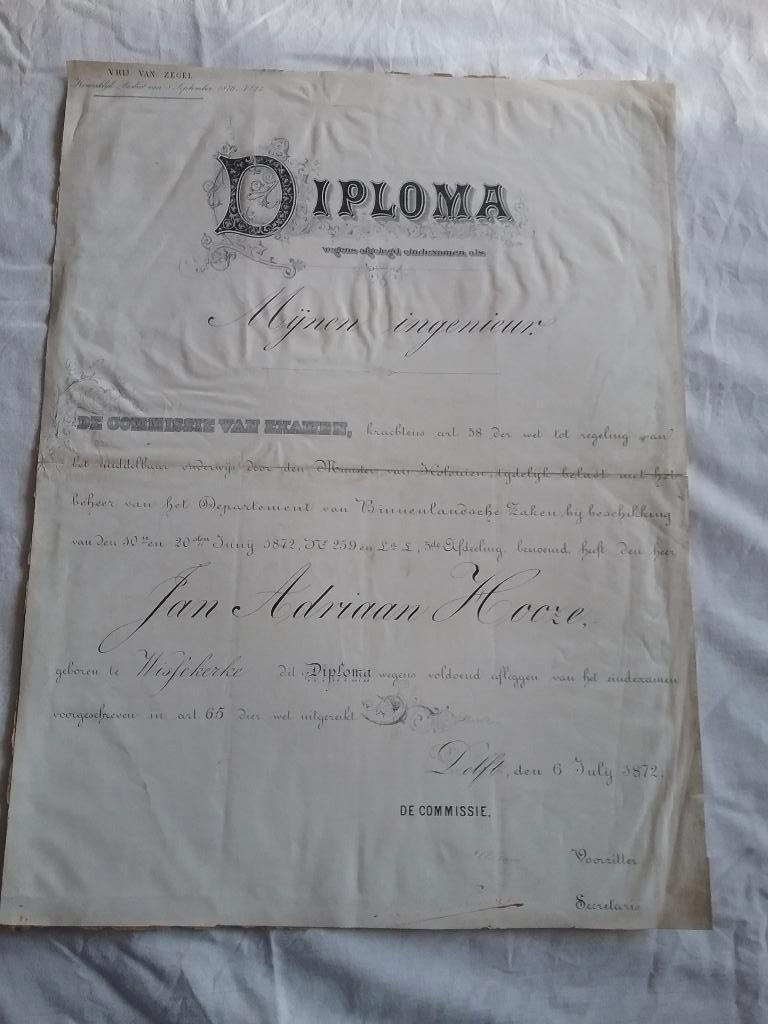 VRIJ VAN ZEGEL
Koninklijk Besluit van 8 September 1870, No 22
DIPLOMA
wegens afgelegd eindexamen als
Mijnen ingenieur.
DE COMMISSIE VAN EXAMEN, krachtens art 58 der wet tot regeling van
het middelbaar onderwijs door den Minister van Kolonien, tijdelijk belast met het
beheer van het Departement van Binnenlandsche Zaken, bij beschikking
van den 10en en 20sten Junij 1872, No 259 en La L, 5de Afdeeling benoemd, heeft den heer
Jan Adriaan Hooze,
geboren te Wissekerke dit Diploma wegens voldoend afleggen van het eindexamen
voorgeschreven in art 65 dier wet uitgereikt
Delft, den 6 July 1872.
DE COMMISSIE,
Voorzitter
Secretaris